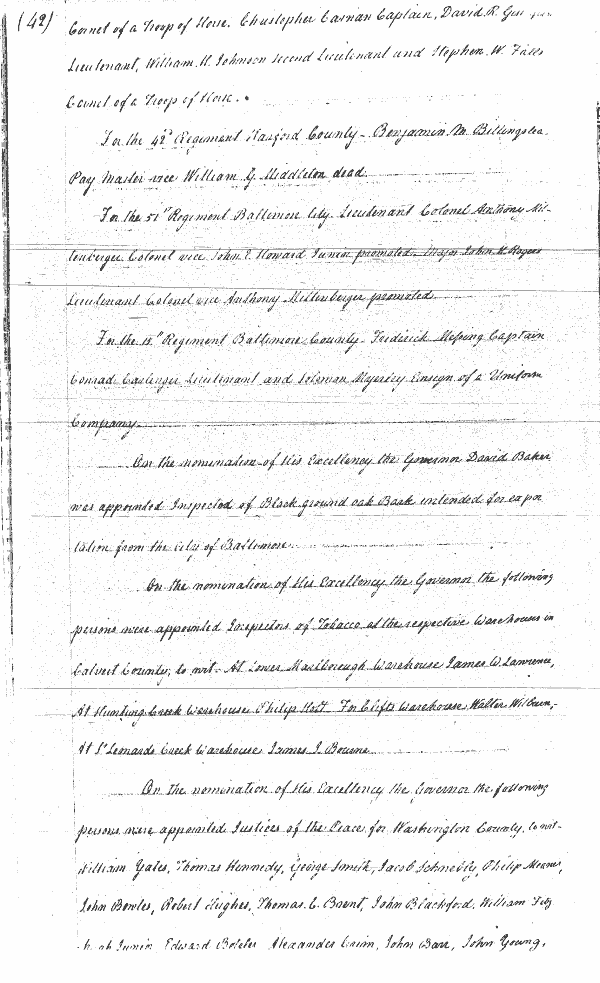 (42)
Cornet of a Troop of Horse. Christopher Carnan Captain, David R. Gist
Lieutenant, William H. Johnson second Lieutenant and Stephen W. Falls
Cornet of a Troop of Horse.
For the 42d Regiment Harford County - Benjamin M. Billingslea
Pay Master vice William G. Middleton dead.
For the 51st Regiment Baltimore City. Lieutenant Colonel Anthony Mil-
tenberger Colonel vice John E. Howard Junior promoted. Major John H. Rogers
Lieutenant Colonel vice Anthony Miltenberger promoted.
For the 15th Regiment Baltimore County. Frederick Messing Captain
Conrad Lieutenant and Soloman Myerley Ensign of a Uniform
Company.
On the nomination of His Excellency the Governor David Baker
was appointed Inspector of Black ground oak Bark intended for expor
tation from the City of Baltimore.
On the nomination of His Excellency the Governor the following
persons were appointed Inspectors of Tobacco at the respective Warehouses in
Calvert County; to wit - At Lower Marlborough Warehouse James W. Lawrence,
At Hunting Creek Warehouse Philip Holt For Clifts Warehouse Walter Wilburn, -
At St Lenards Creek Warehouse James J. Bourne
On the nomination of His Excellency the Governor the following
persons were appointed Justices of the Peace for Washington County, to wit -
William Yates, Thomas Kennedy, George Smith, Jacob Schnebly, Philip
John Bowles, Robert Hughes, Thomas C. Brent, John Blackford, William Fitz
hugh Junior Edward Boteler Alexander John Barr, John Young,